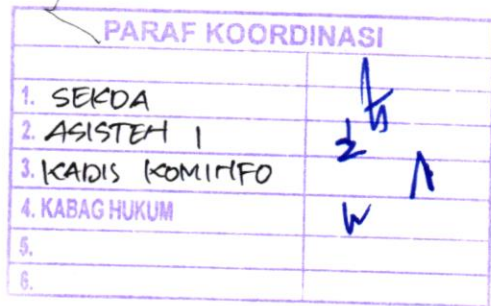 PARAF KOORDINASI
1. SEKDA
2. ASISTEN 1
3. KADIS KOMINFO
4. KABAG HUKUM
5.
6.